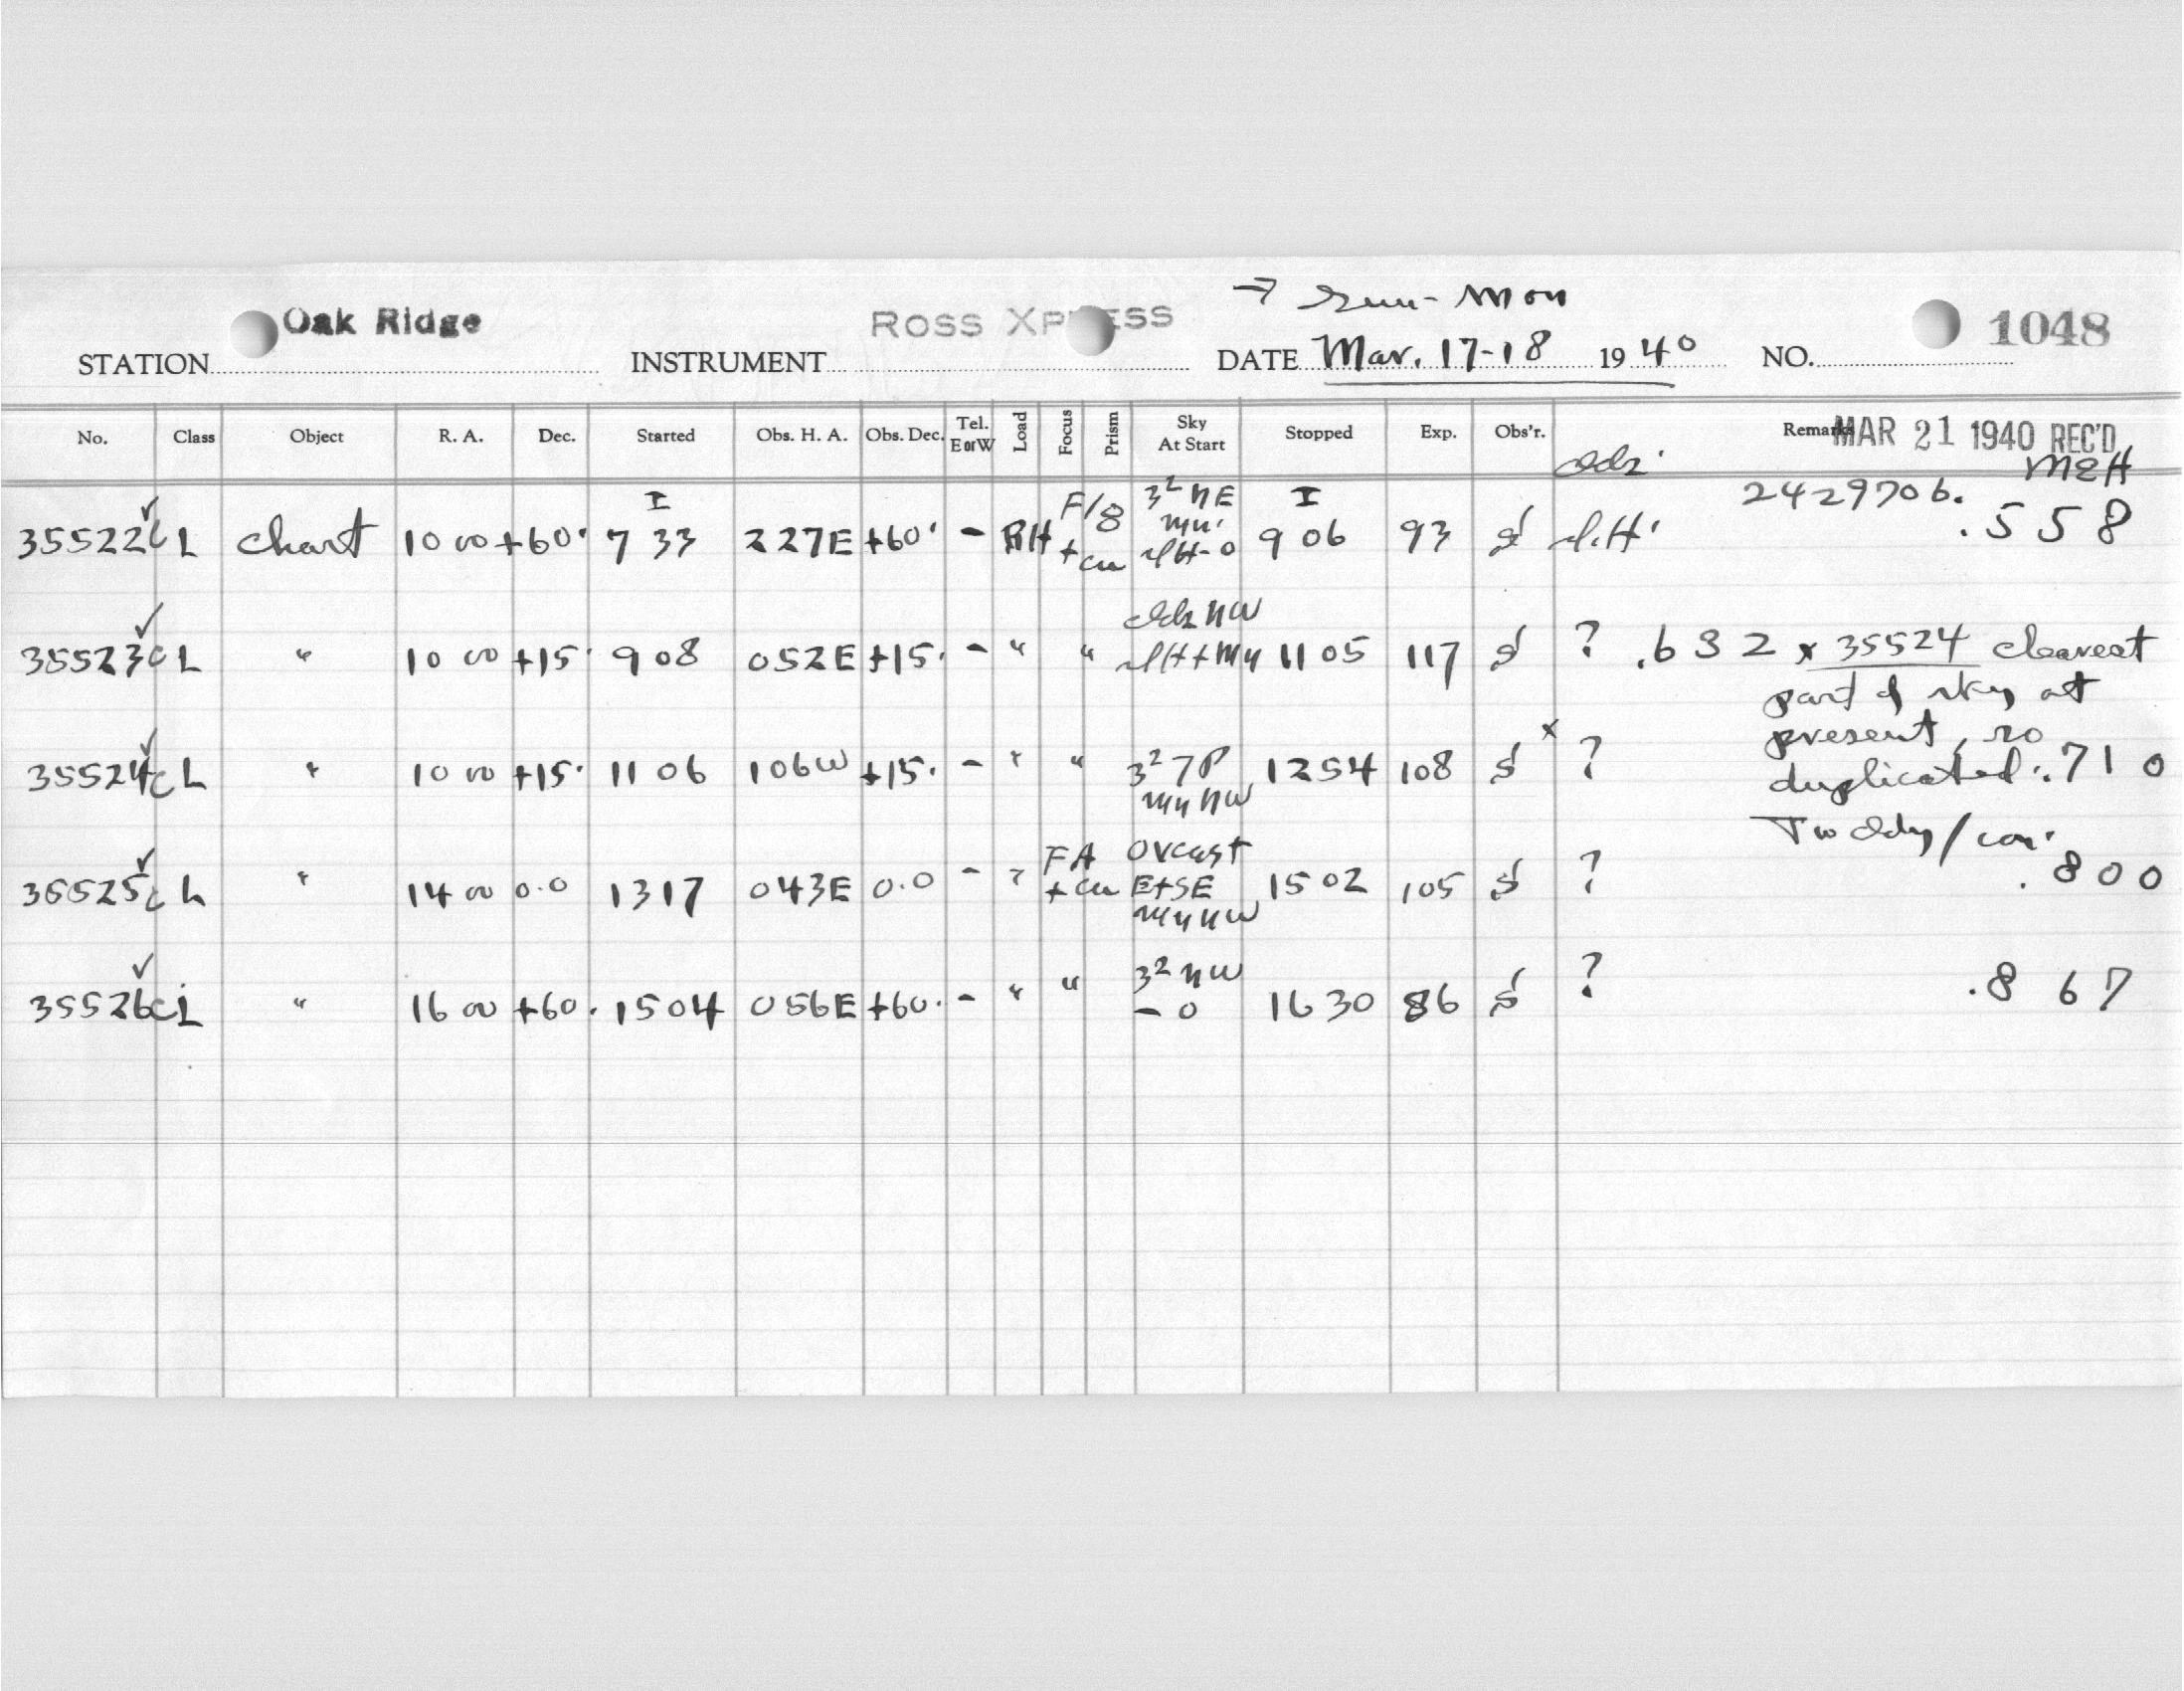 → Sun-Mon
Oak Ridge ROSS XPRESS 1048
STATION INSTRUMENT DATE Mar. 17-18 1940 NO.
No. Class Object R. A. Dec. Started Obs. H. A. Obs. Dec. Tel. E or W Load Focus Prism Sky At Start Stopped Exp. Obs'r. Remarks MAR 21 1940 REC'D
MEH
I F/8 3² NE I 2429706.
35522 C L Chart 10 00 +60. 7 33 227E +60. - RH + cu 9 06 93 .558
35523 C L " 10 00 +15. 9 08 052E +15. - " " 11 05 117 ? .632 x 35524 clearest
part of sky at
present, so
35524 C L " 10 00 +15. 11 06 106W +15. - " " 3² 7P 12 54 108 x ? duplicated. .710
NW
Two
FA Ovcast
35525 C L " 14 00 0.0 13 17 043E 0.0 - " + cu E+SE 15 02 105 ? .800
NW
35526 C L " 16 00 +60. 15 04 056E +60. - " " 3² NW - 0 16 30 86 ? .867